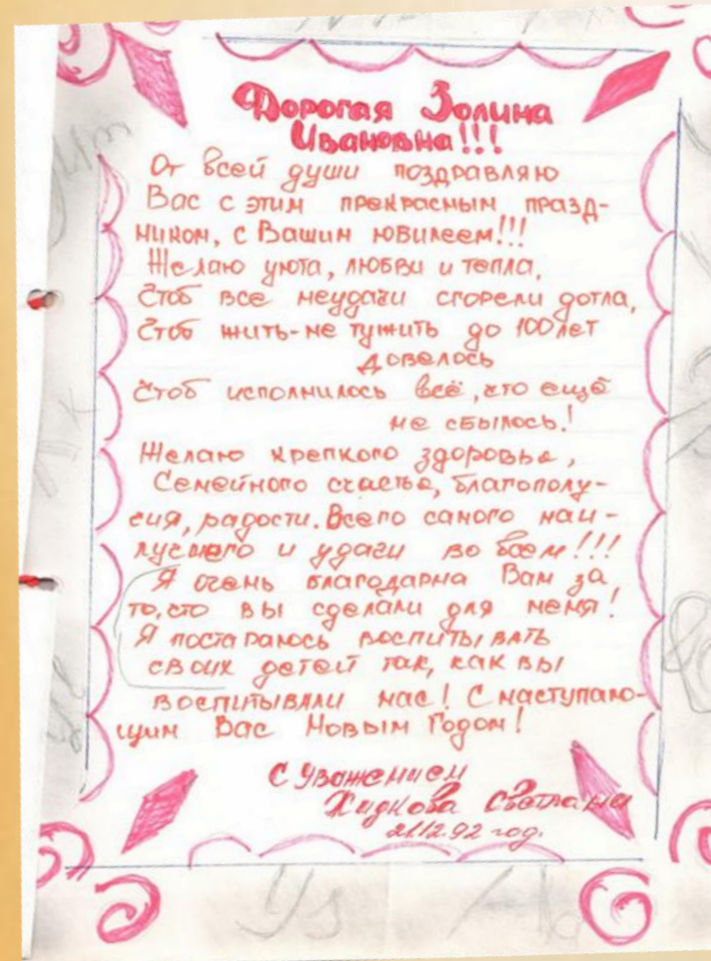 Дорогая Золина
Ивановна!!!
От всей души поздравляю
Вас с этим прекрасным празд-
ником, с Вашим юбилеем!!!
Желаю уюта, любви и тепла,
Чтоб все неудачи сгорели дотла,
Чтоб жить-не тужить до 100 лет
довелось
Чтоб исполнилось всё, что ещё
не сбылось!
Желаю крепкого здоровья,
Семейного счастья, благополу-
чия, радости. Всего самого наи-
лучшего и удачи во всем!!!
Я очень благодарна Вам за
то, что вы сделали для меня!
Я постараюсь воспитывать
своих детей так, как вы
воспитывали нас! С наступаю-
щим Вас Новым Годом!
С Уважением
Хидкова Светлана
21.12.92 год.